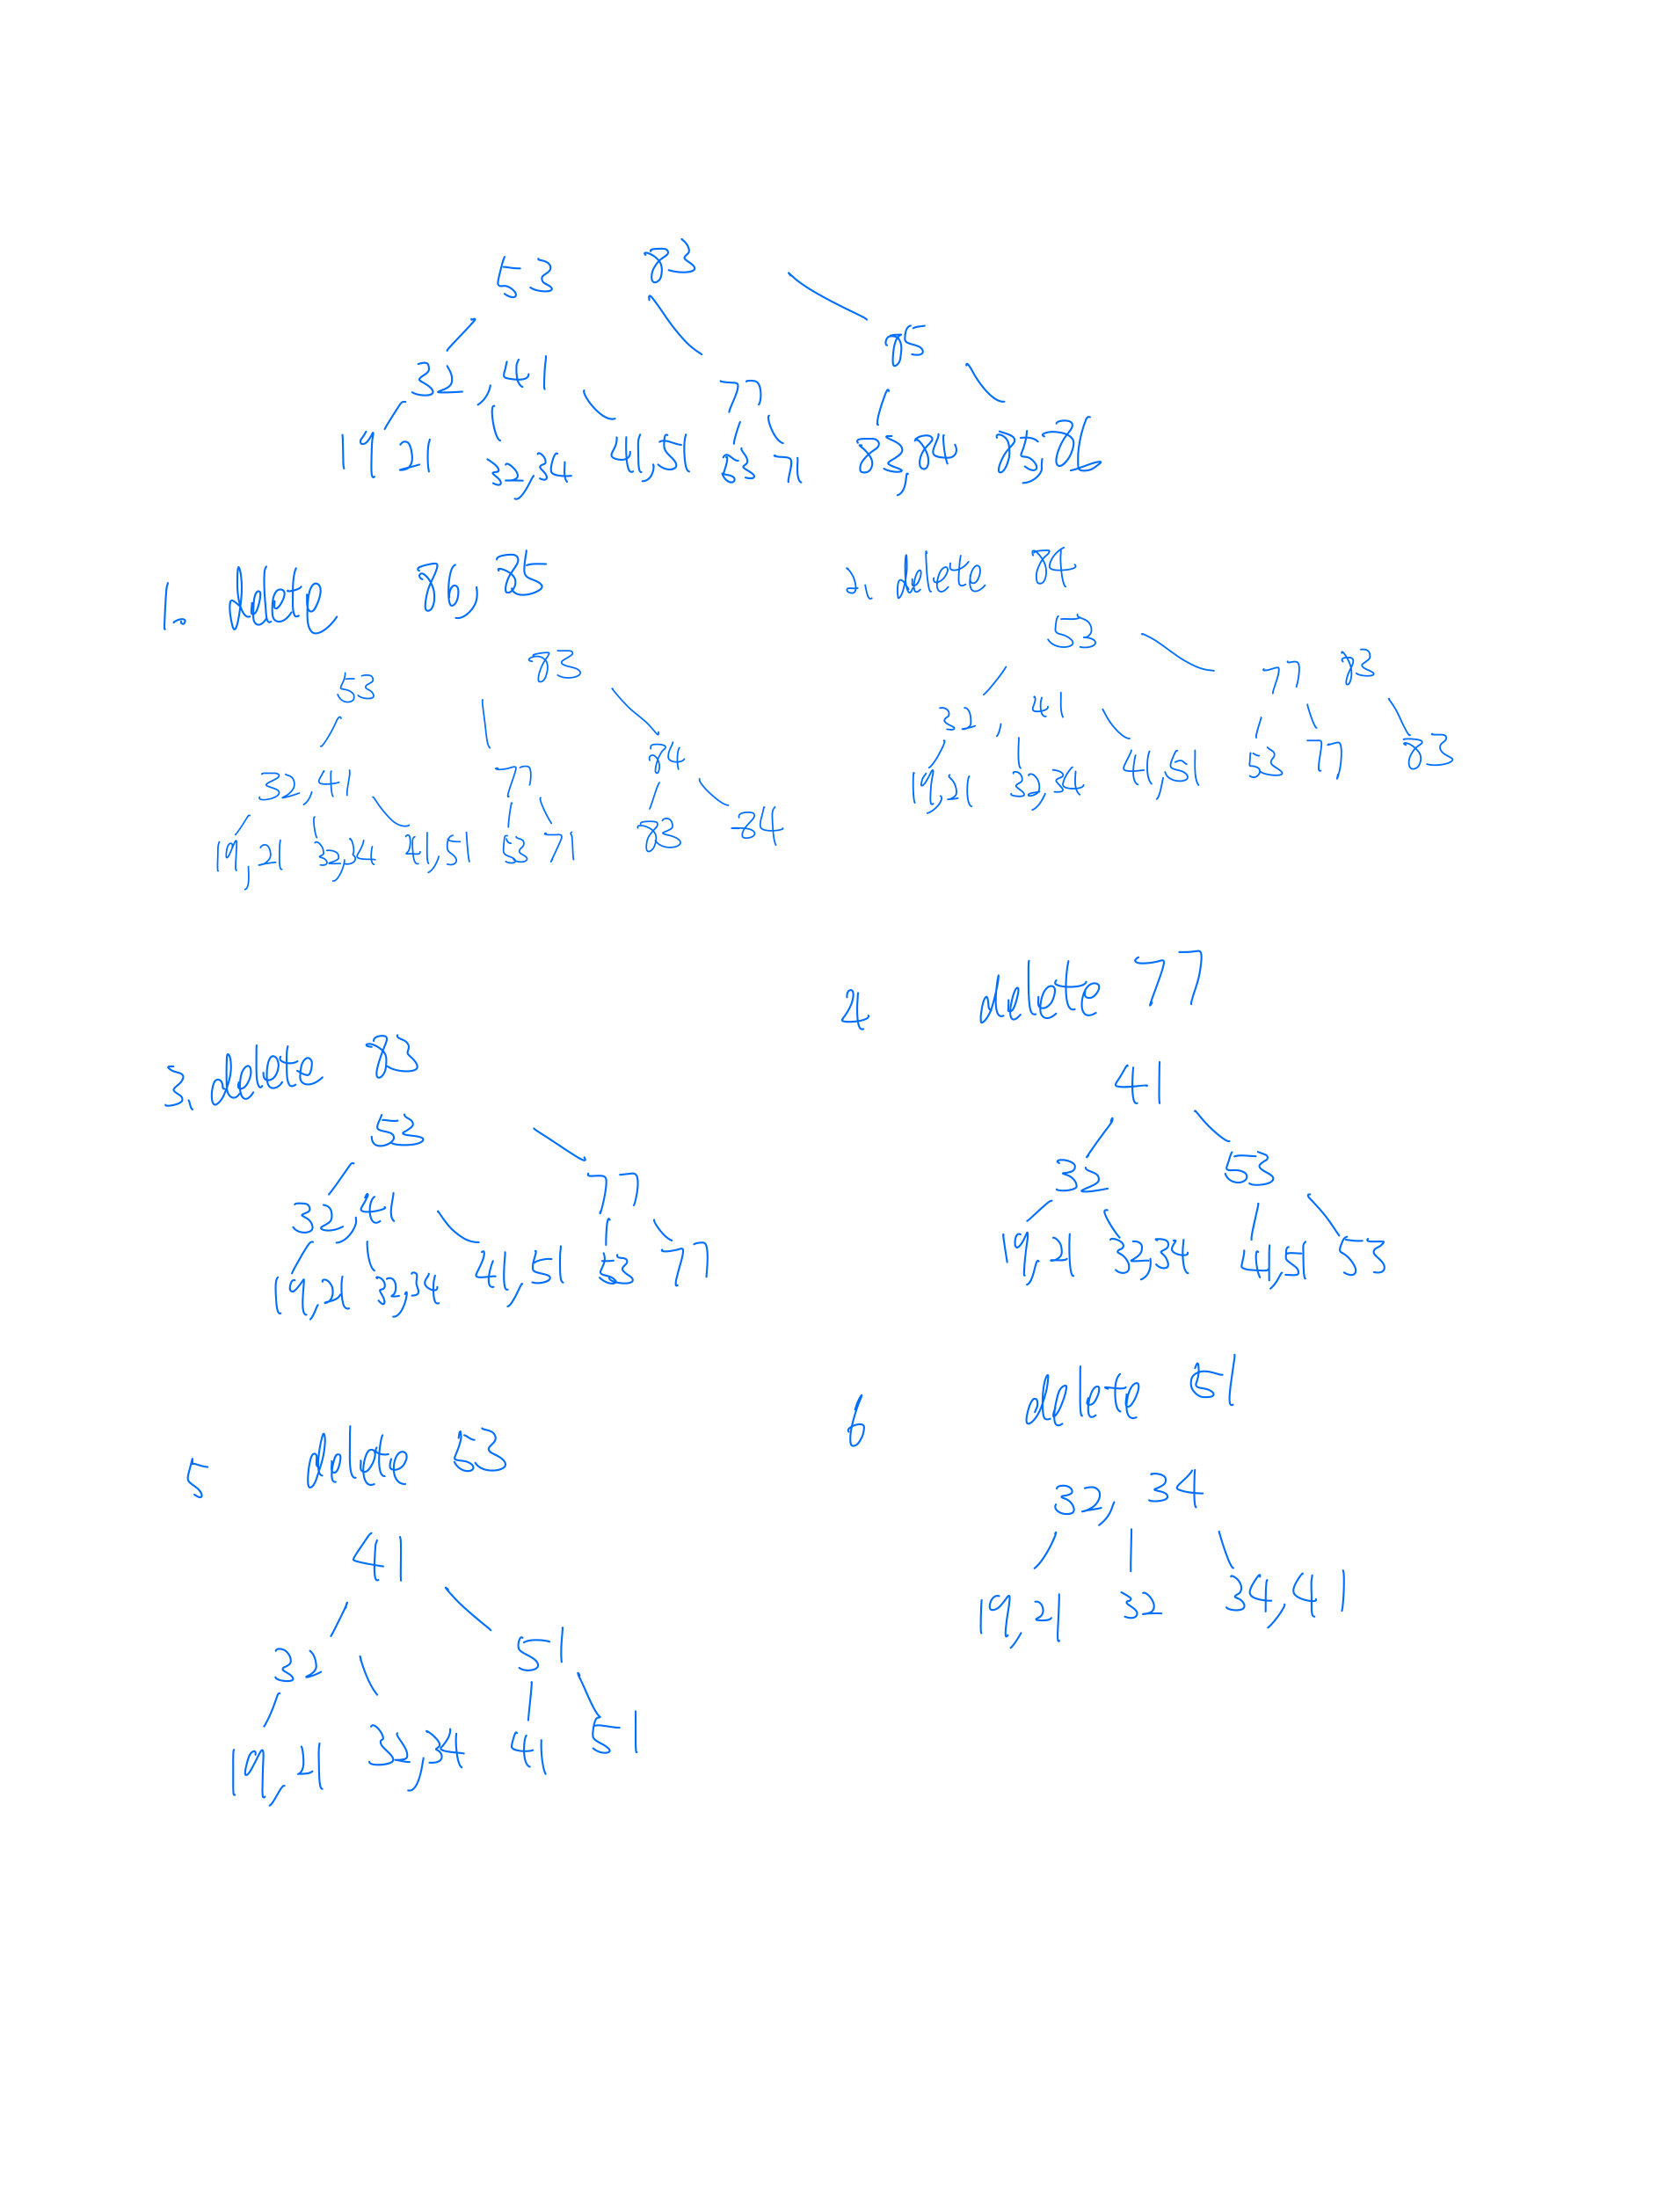 53 83
85
32, 41 77
19 21 32,34 41,51 53 77 83,84 85,86
1. delete 86, 85
53 83
32, 41 77 84
19,21 32,34 41,51 53 77 83 84
2. delete 84
53
32, 41 77 83
19,21 32,34 41,51 53 77 83
3. delete 83
53
32,41 77
19,21 32,34 41,51 53 77
4 delete 77
41
32 53
19,21 32,34 41,51 53
5 delete 53
41
32 51
19,21 32,34 41 51
6 delete 51
32, 34
19,21 32 34,41